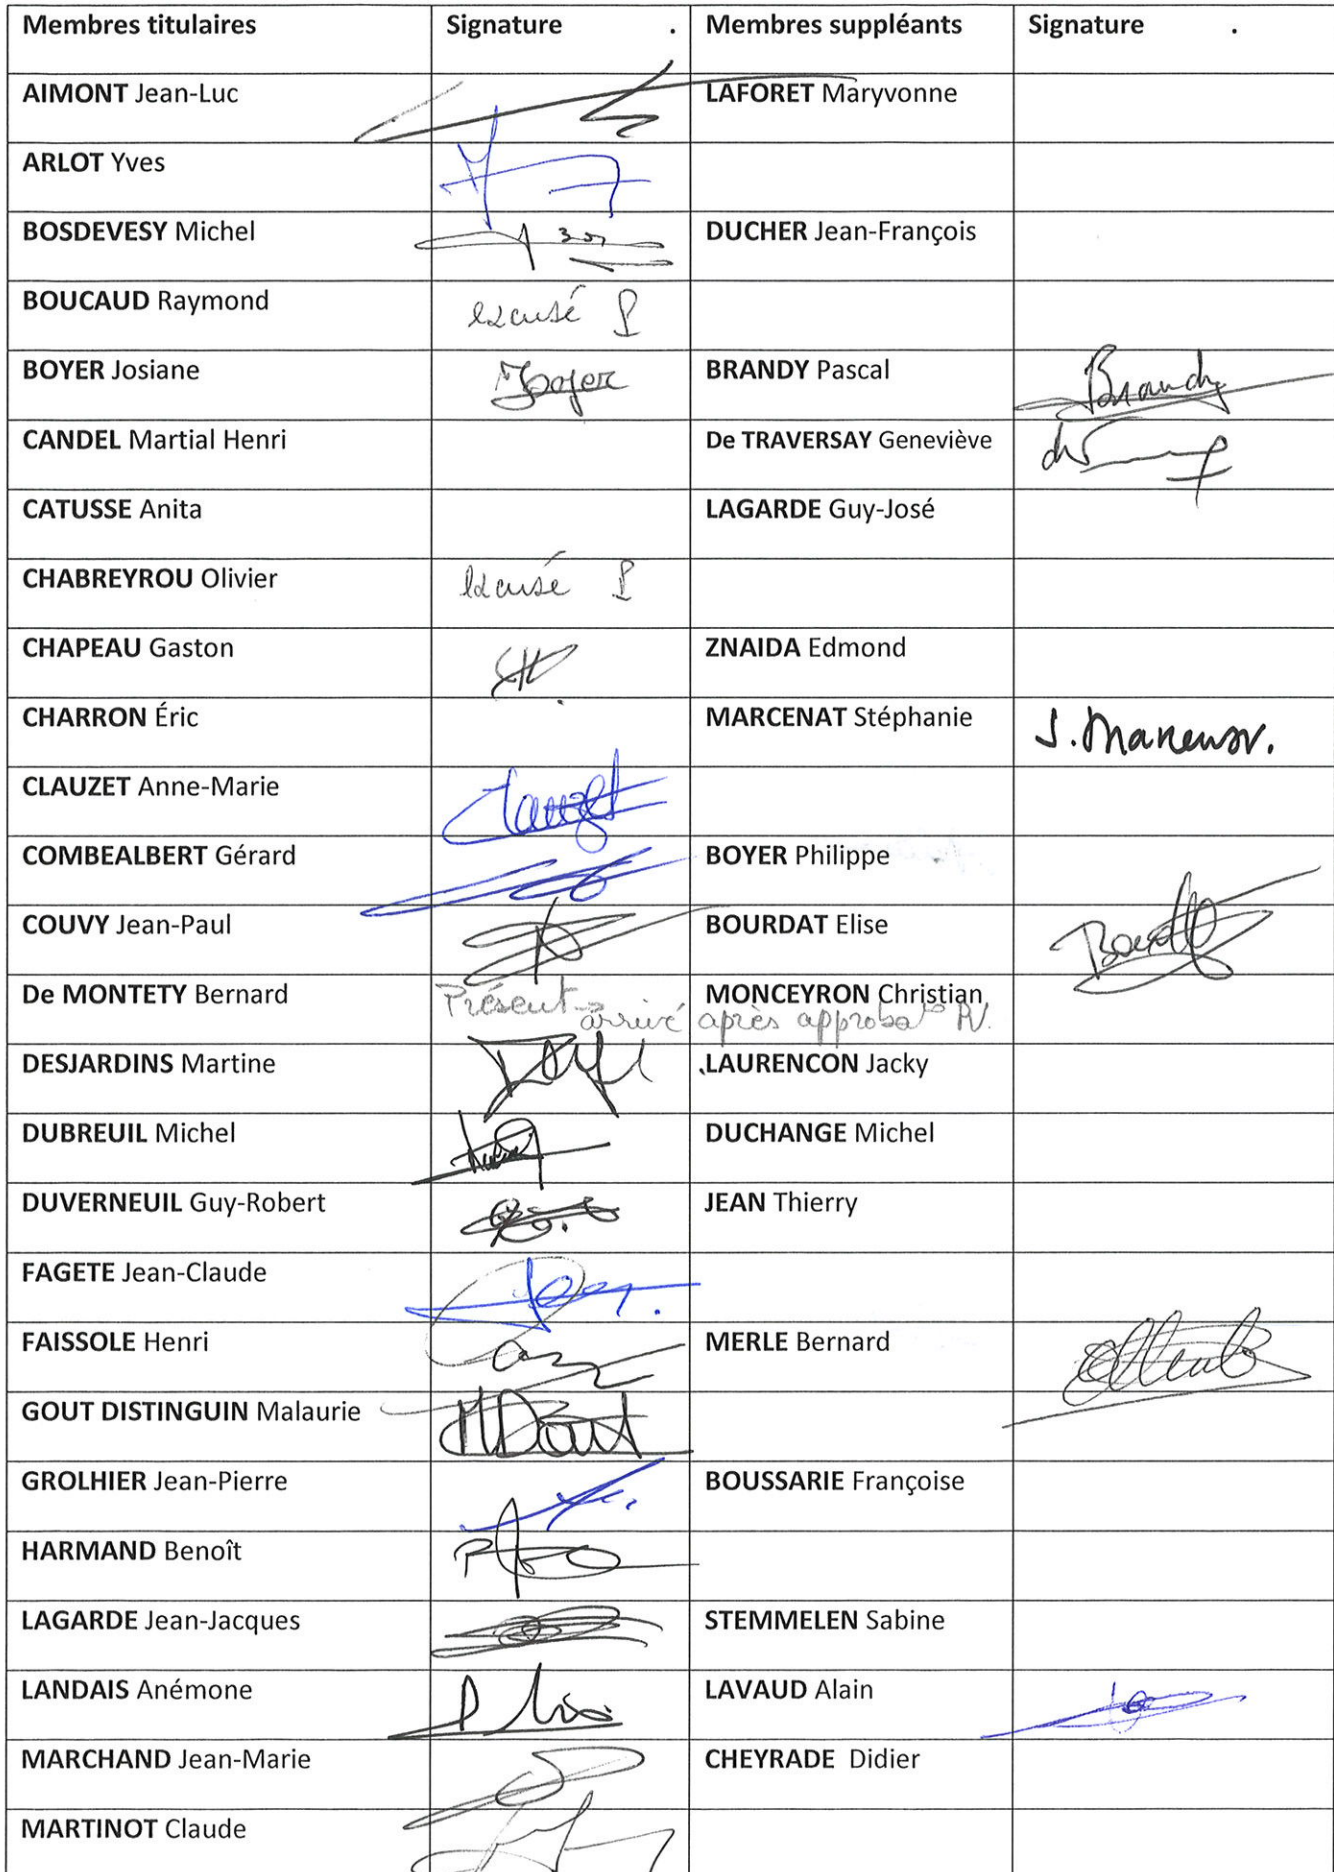 Membres titulaires Signature . Membres suppléants Signature .
AIMONT Jean-Luc LAFORET Maryvonne
ARLOT Yves
BOSDEVESY Michel DUCHER Jean-François
BOUCAUD Raymond excusé
BOYER Josiane Boyer BRANDY Pascal Brandy
CANDEL Martial Henri De TRAVERSAY Geneviève
CATUSSE Anita LAGARDE Guy-José
CHABREYROU Olivier excusé
CHAPEAU Gaston ZNAIDA Edmond
CHARRON Éric MARCENAT Stéphanie
CLAUZET Anne-Marie Clauzet
COMBEALBERT Gérard BOYER Philippe
COUVY Jean-Paul BOURDAT Elise
De MONTETY Bernard Présent MONCEYRON Christian
arrivé après approba° PV.
DESJARDINS Martine LAURENCON Jacky
DUBREUIL Michel DUCHANGE Michel
DUVERNEUIL Guy-Robert JEAN Thierry
FAGETE Jean-Claude
FAISSOLE Henri MERLE Bernard
GOUT DISTINGUIN Malaurie
GROLHIER Jean-Pierre BOUSSARIE Françoise
HARMAND Benoît
LAGARDE Jean-Jacques STEMMELEN Sabine
LANDAIS Anémone LAVAUD Alain
MARCHAND Jean-Marie CHEYRADE Didier
MARTINOT Claude